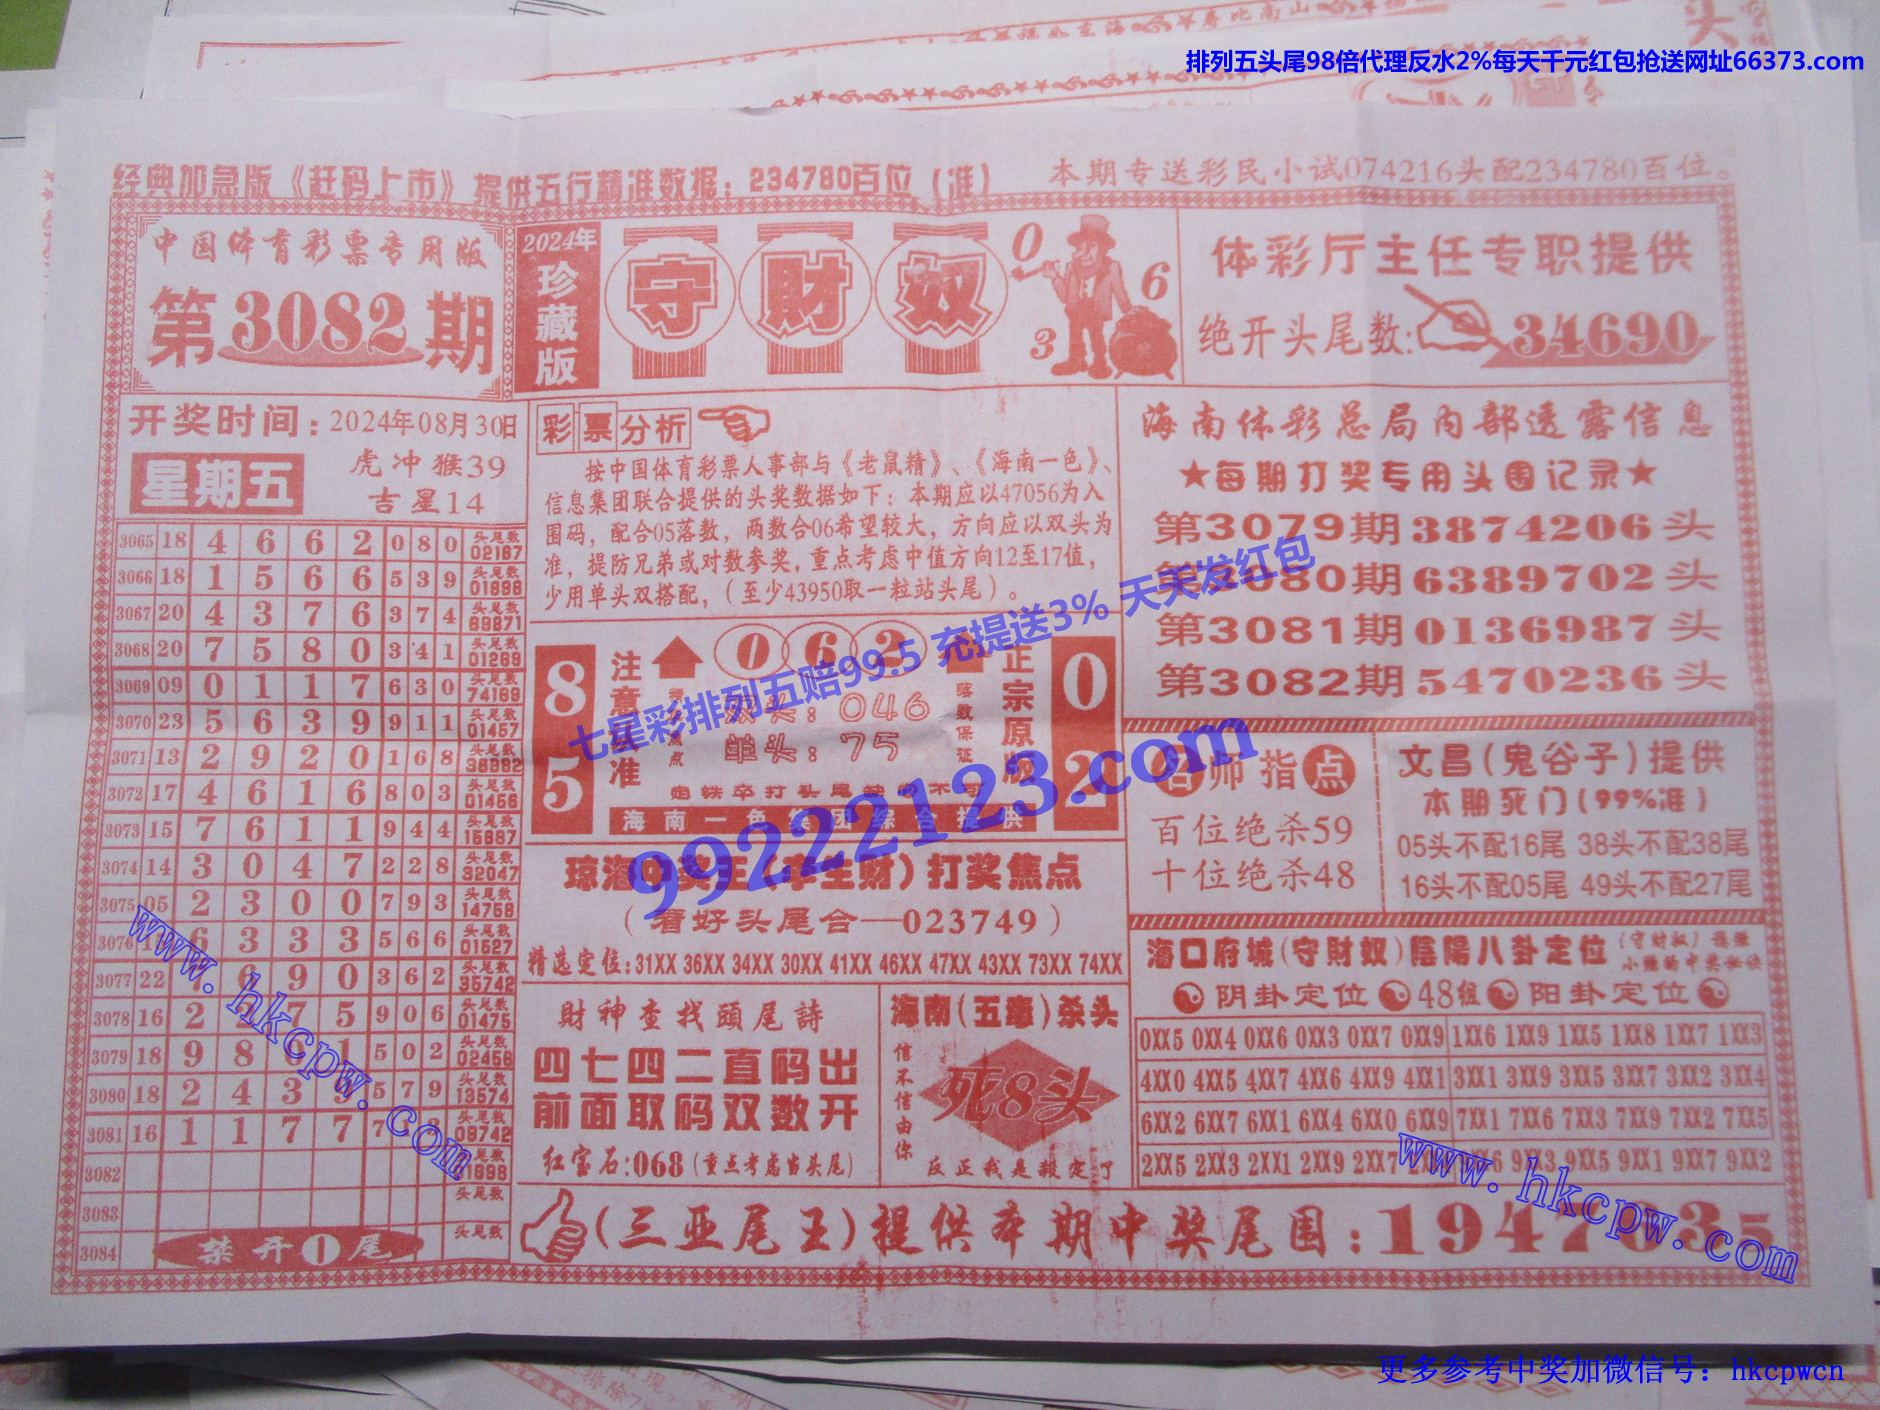 排列五头尾98倍代理反水2%每天千元红包抢送网址66373.com
经典加急版《赶码上市》提供五行精准数据：234780百位（准）
本期专送彩民小试074216头配234780百位。
中国体育彩票专用版
第3082期
2024年
珍藏版
守財奴
0
6
3
体彩厅主任专职提供
绝开头尾数：34690
开奖时间：2024年08月30日
星期五
虎冲猴39
吉星14
3065 18 4 6 6 2 0 8 0 头尾数 02167
3066 18 1 5 6 6 5 3 9 头尾数
3067 20 4 3 7 6 3 7 4 头尾数
3068 20 7 5 8 0 3 4 1 头尾数 01269
3069 09 0 1 1 7 6 3 0 头尾数 74169
3070 23 5 6 3 9 9 1 1 头尾数 01457
3071 13 2 9 2 0 1 6 8 头尾数
3072 17 4 6 1 6 8 0 3 头尾数 01456
3073 15 7 6 1 1 9 4 4 头尾数
3074 14 3 0 4 7 2 2 8 头尾数 32047
3075 05 2 3 0 0 7 9 3 头尾数 14758
3076 6 3 3 3 5 6 6 头尾数 01527
3077 22 6 9 0 3 6 2 头尾数 35742
3078 16 2 2 7 5 9 0 6 头尾数 01475
3079 18 9 8 1 5 0 2 头尾数 02456
3080 18 2 4 3 5 7 9 头尾数 13574
3081 16 1 1 7 7 7 头尾数 09742
3082 头尾数
3083 头尾数
3084 头尾数
禁开1尾
彩票分析
按中国体育彩票人事部与《老鼠精》、《海南一色》、
信息集团联合提供的头奖数据如下：本期应以47056为入
围码，配合05落数，两数合06希望较大，方向应以双头为
准，提防兄弟或对数参奖，重点考虑中值方向12至17值，
少用单头双搭配，（至少43950取一粒站头尾）。
8
5
注意 准
0 6 2
双头：046
单头：75
落数保证
正宗原版
0
2
海南一色集团综合提供
琼海中奖王（李生财）打奖焦点
（看好头尾合—023749）
精选定位：31XX 36XX 34XX 30XX 41XX 46XX 47XX 43XX 73XX 74XX
財神查找頭尾詩
四七四二直码出
前面取码双数开
红宝石：068（重点考虑当头尾）
海南（五毒）杀头
信不信由你
死8头
反正我是殺定了
海南体彩总局内部透露信息
★每期打奖专用头围记录★
第3079期3874206头
第3080期6389702头
第3081期0136987头
第3082期5470236头
名师指点
百位绝杀59
十位绝杀48
文昌（鬼谷子）提供
本期死门（99%准）
05头不配16尾 38头不配38尾
16头不配05尾 49头不配27尾
海口府城（守財奴）陰陽八卦定位
阴卦定位 48组 阳卦定位
0XX5 0XX4 0XX6 0XX3 0XX7 0XX9 1XX6 1XX9 1XX5 1XX8 1XX7 1XX3
4XX0 4XX5 4XX7 4XX6 4XX9 4XX1 3XX1 3XX9 3XX5 3XX7 3XX2 3XX4
6XX2 6XX7 6XX1 6XX4 6XX0 6XX9 7XX1 7XX6 7XX3 7XX9 7XX2 7XX5
2XX5 2XX3 2XX1 2XX9 2XX7 9XX3 9XX5 9XX1 9XX7 9XX2
（三亚尾王）提供本期中奖尾围：1947035
七星彩排列五赔99.5 充提送3% 天天发红包
99222123.com
www.hkcpw.com
www.hkcpw.com
更多参考中奖加微信号：hkcpwcn